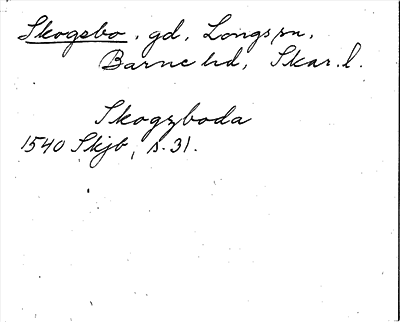 Skogsbo, gd, Longs sn,
Barne hd, Skar. l.
Skogzboda
1540 Skjb, s. 31.